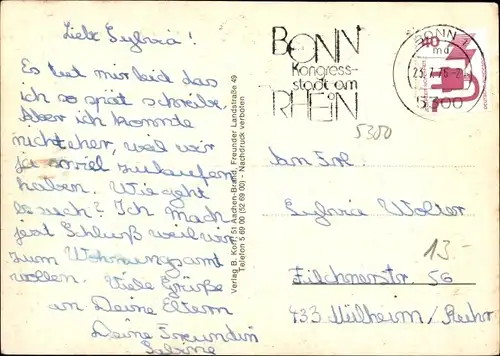 Liebe Sylvia!
Es tut mir leid das
ich so spät schreibe.
Aber ich konnte
nicht eher, weil wir
ja soviel zulaufen
haben. Wie geht
es euch? Ich mach
jetzt Schluß weil wir
zum Wohnungsamt
wollen. Viele Grüße
an Deine Eltern
Deine Freundin
Sabine
Verlag B. Korr, 51 Aachen-Brand, Freunder Landstraße 49
Telefon 5 69 00 (52 69 00) - Nachdruck verboten
BONN
Kongress-
stadt am
RHEIN
BONN 1
md
5300
40
5300
An Frl.
Sylvia Wolter
13.-
Filchnerstr. 56
433 Mülheim/Ruhr